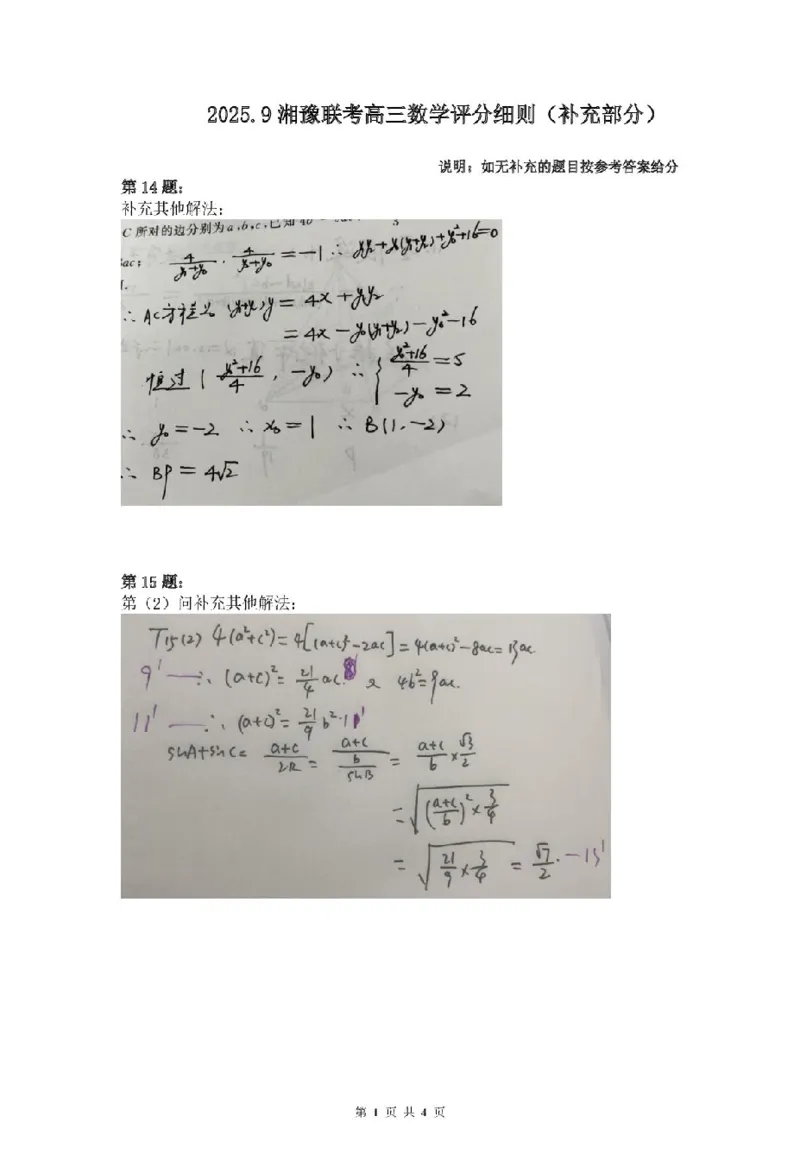 2025.9 湘豫联考高三数学评分细则（补充部分）
说明：如无补充的题目按参考答案给分
第 14 题：
补充其他解法：
C 所对的边分别为 a,b,c,已知 4b
ac；
4/(y₁+y₀) · 4/(y₂+y₀) = -1 ∴ y₁y₂+y₀(y₁+y₂)+y₀²+16=0
∴ AC方程为 (y₁+y₂)y = 4x+y₁y₂
= 4x-y₀(y₁+y₂)-y₀²-16
恒过 ( (y₀²+16)/4 , -y₀ ) ∴ { (y₀²+16)/4 = 5
-y₀ = 2
∴ y₀ = -2 ∴ x₀ = 1 ∴ B(1,-2)
∴ BP = 4√2
第 15 题：
第（2）问补充其他解法：
T15(2) 4(a²+c²)=4[(a+c)²-2ac]=4(a+c)²-8ac=13ac
9' ∴ (a+c)²= 21/4 ac. 又 4b²=9ac.
11' ∴ (a+c)²= 21/9 b².
sinA+sinC= (a+c)/2R = (a+c)/(b/sinB) = (a+c)/b × √3/2
= √(((a+c)/b)² × 3/4)
= √(21/9 × 3/4) = √7/2. -13'
第 1 页 共 4 页